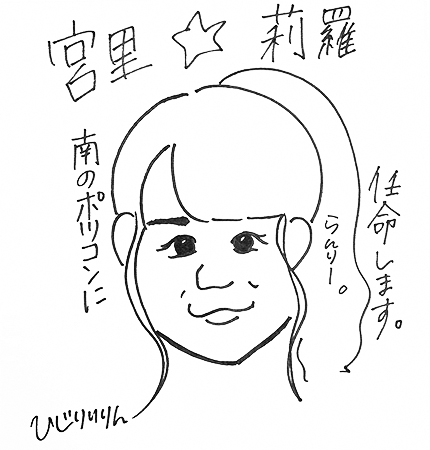 宮里☆莉羅
南のポツコンに
任命します。
らんりー。
ひじりりりん